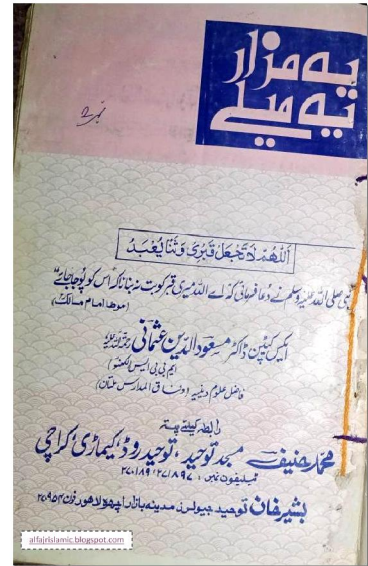 یہ مزار
یہ میلے
اَللّٰهُمَّ لَا تَجْعَلْ قَبْرِى وَثَنًا يُعْبَدُ
نبی صلی اللہ علیہ وسلم نے دُعا فرمائی کہ اے اللہ میری قبر کو بت نہ بنانا کہ اس کو پُوجا جائے"
(موطا امام مالک)
ایکس کیپٹن ڈاکٹر مسعود الدین عثمانی
ایم بی بی ایس لکھنؤ
(فاضل علوم دینیہ وفاق المدارس ملتان)
رابطہ کیلئے پتہ
محمد حنیف مسجد توحید، توحید روڈ، کیماڑی کراچی
ٹیلیفون نمبر:
بشیر خان توحید جیولرز مدینہ بازار اچھرہ لاہور فون
alfajrislamic.blogspot.com